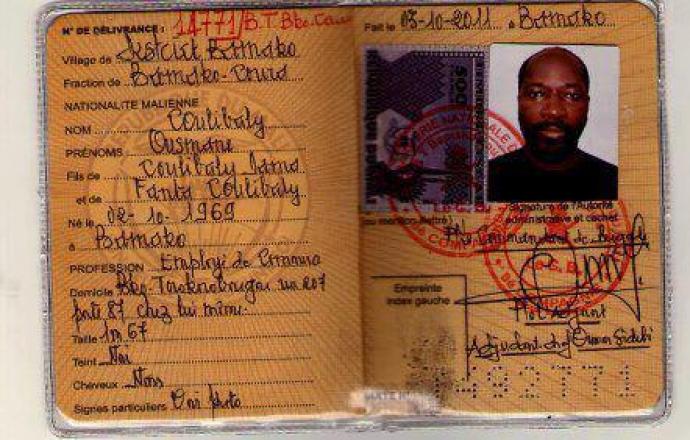 N° DE DÉLIVRANCE : 14771/B.T Bko.Coura
Village de District Bamako
Fraction de Bamako-Coura
NATIONALITÉ MALIENNE
NOM Coulibaly
PRÉNOMS Ousmane
Fils de Coulibaly
et de Fanta Coulibaly
Né le 02-10-1969
à Bamako
PROFESSION Employé de Commerce
Domicile Bko-
pte 87 chez lui même.
Taille 1m67
Teint Noir
Cheveux Noirs
Signes particuliers
Fait le 03-10-2011 à Bamako
500
Signature de l'Autorité
administrative et cachet
P/le Commandant de Brigade
Empreinte
index gauche
P/o L'Adjoint
Adjudant chef Oumar Sidibé
492771